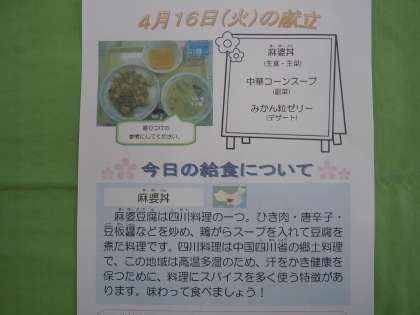 4月16日(火)の献立
麻婆丼
(主食・主菜)
中華コーンスープ
(副菜)
みかん粒ゼリー
(デザート)
盛りつけの
参考にしてください。
今日の給食について
麻婆丼
麻婆豆腐は四川料理の一つ。ひき肉・唐辛子・
豆板醤などを炒め、鶏がらスープを入れて豆腐を
煮た料理です。四川料理は中国四川省の郷土料理
で、この地域は高温多湿のため、汗をかき健康を
保つために、料理にスパイスを多く使う特徴があ
ります。味わって食べましょう!